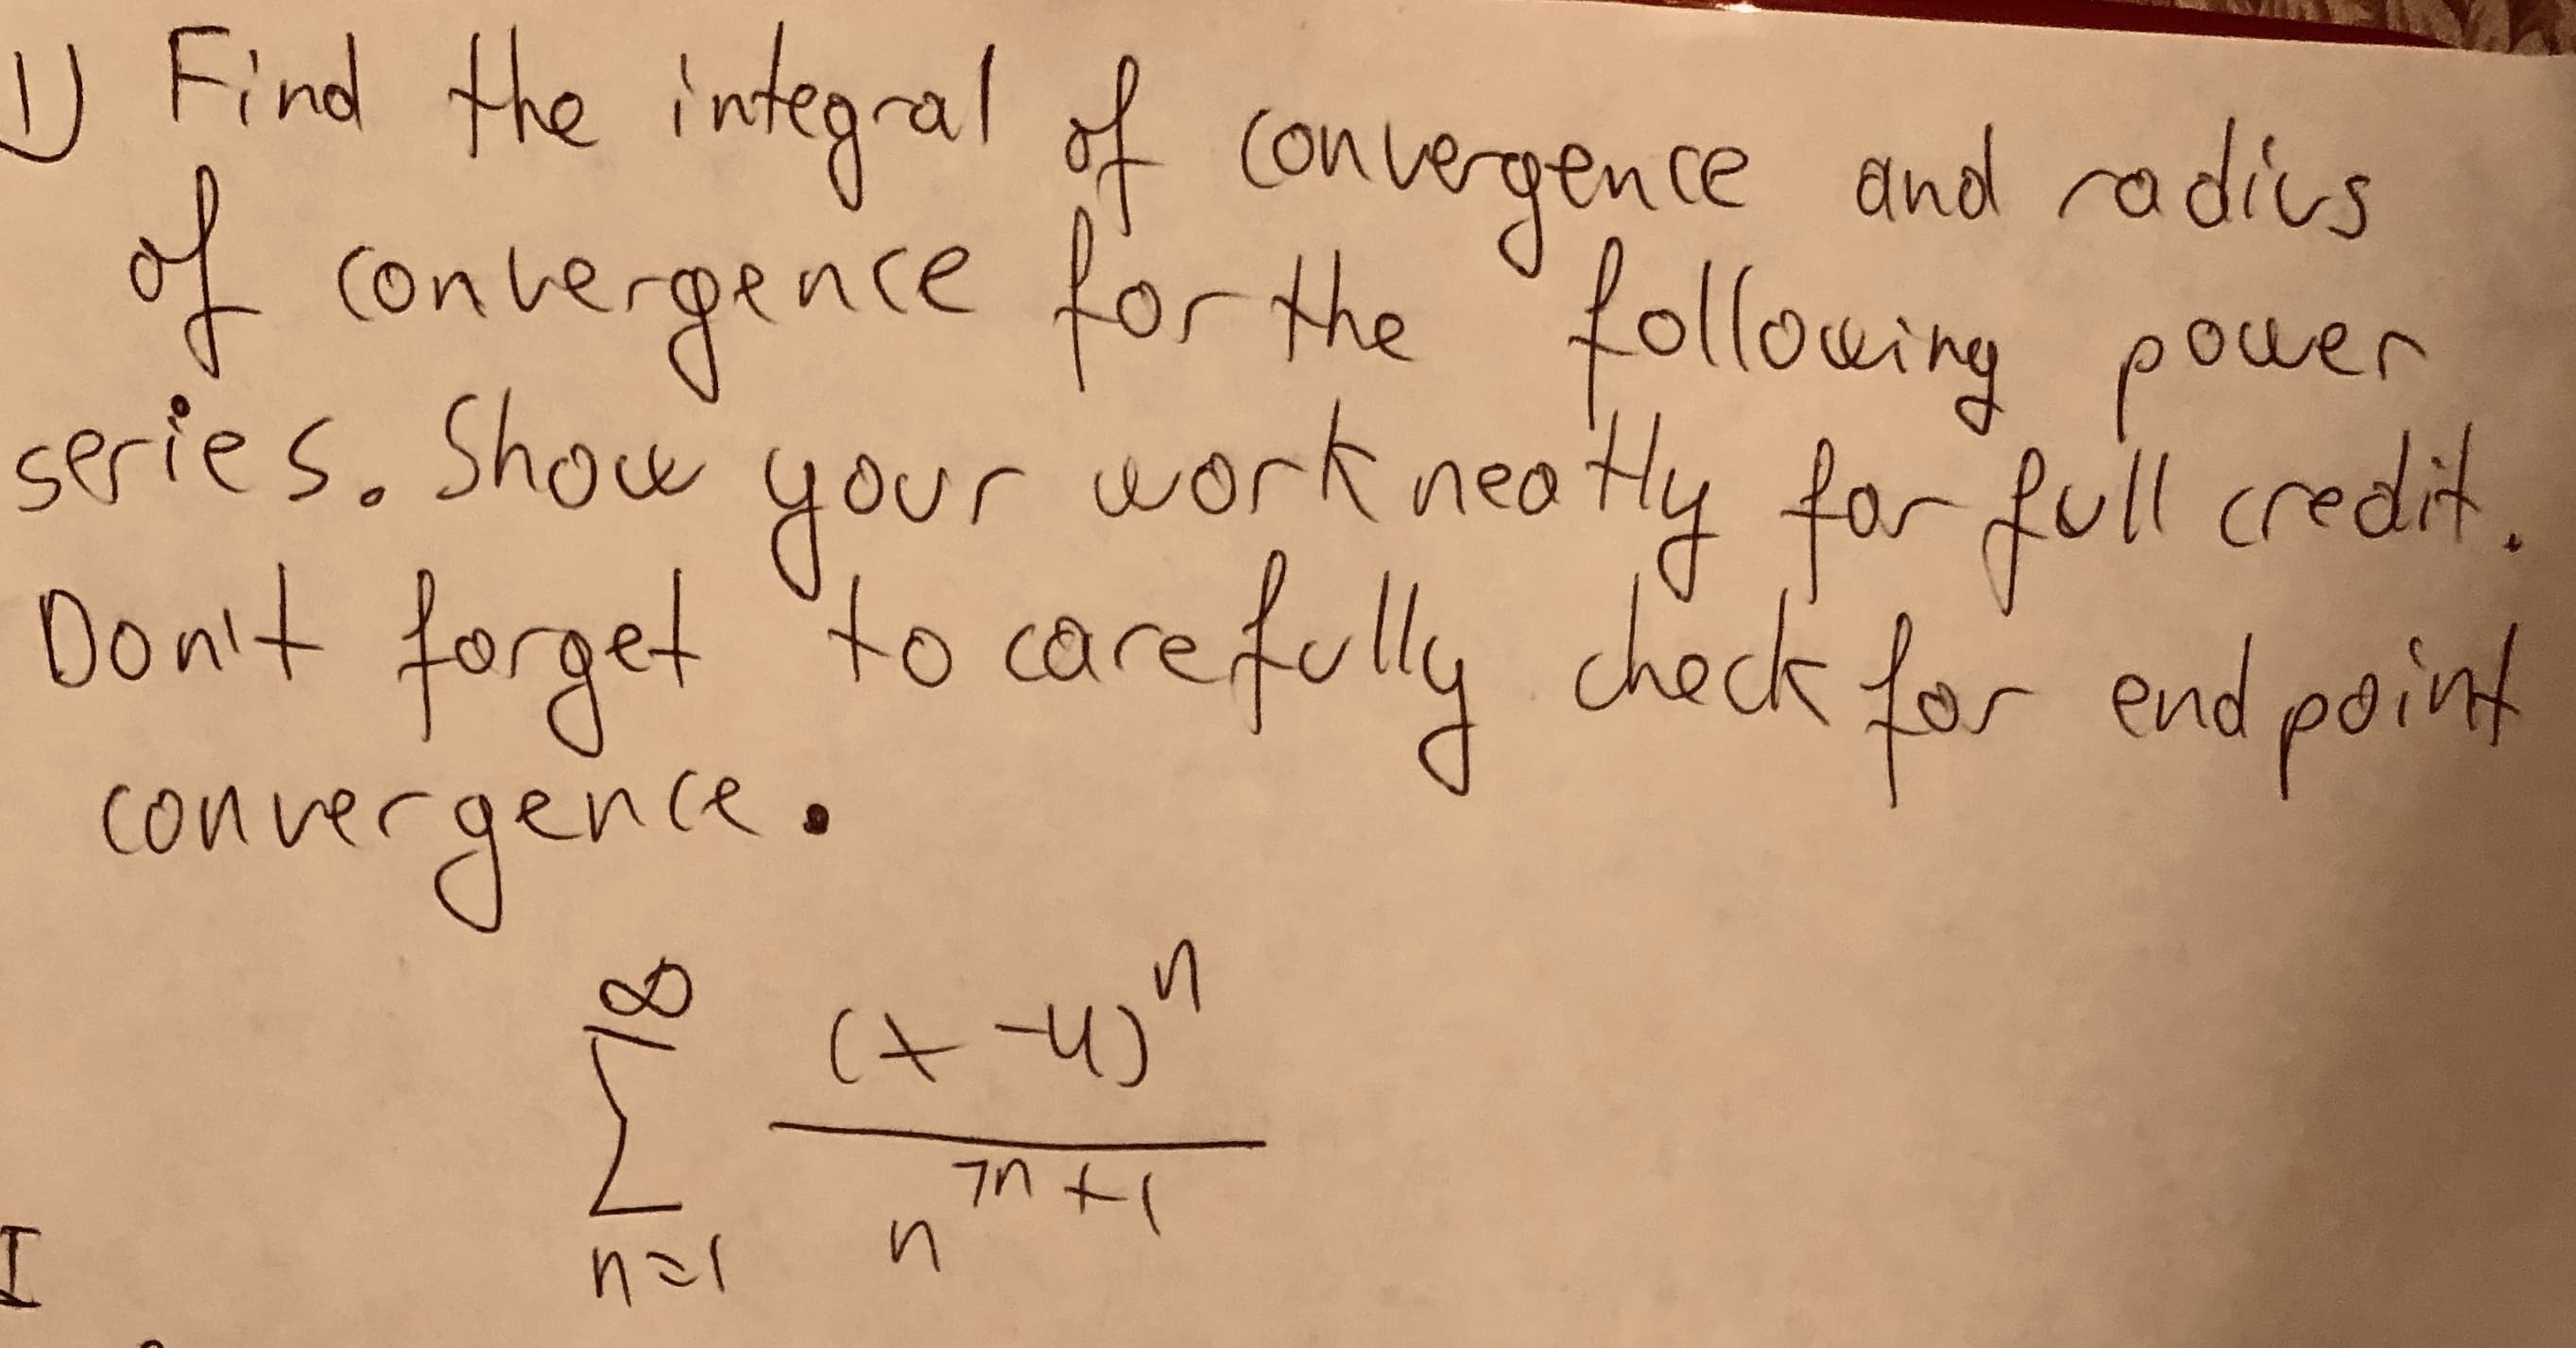 1) Find the integral of convergence and radius
of convergence for the following power
series. Show your work neatly for full credit.
Don't forget to carefully check for end point
convergence.
∞
Σ (x-4)^n / n^(7n+1)
n=1
I